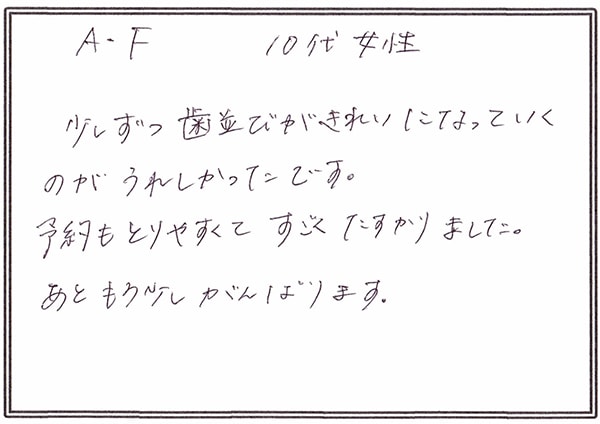 A.F 10代 女性
少しずつ歯並びがきれいになっていく
のがうれしかったです。
予約もとりやすくてすごくたすかりました。
あともう少しがんばります。